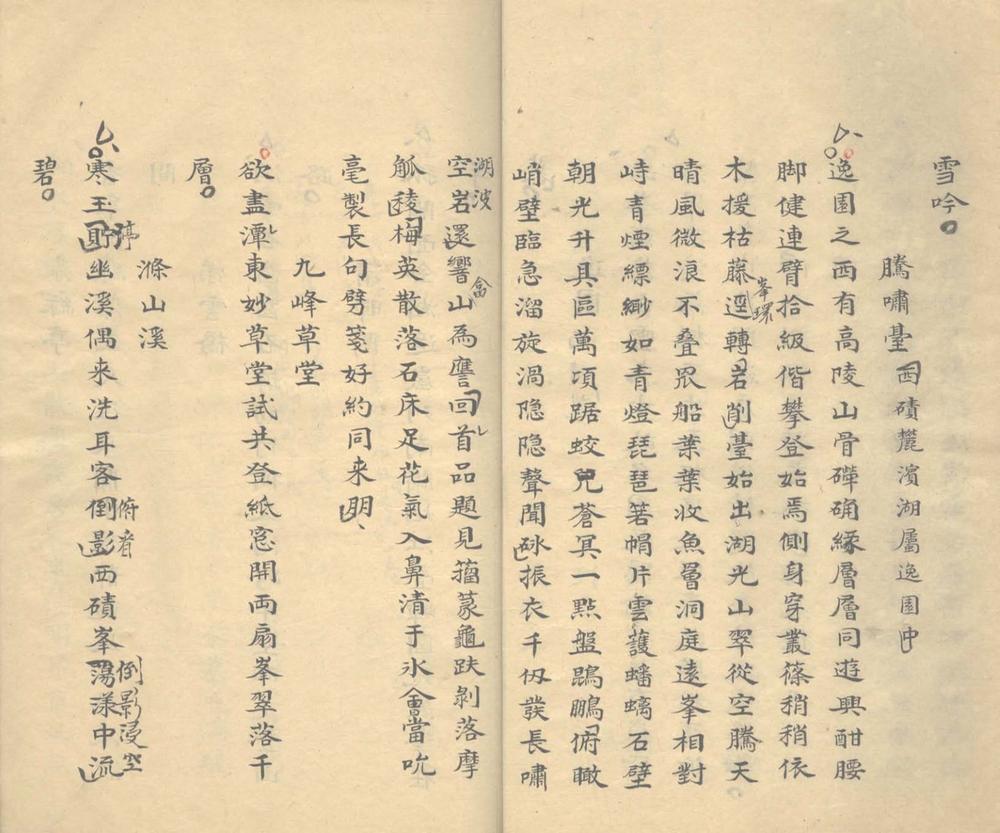 雪吟
騰嘯臺西磧麓濱湖屬逸園中
逸園之西有高陵山骨磾确緣層層同遊興酣腰
脚健連臂拾級偕攀登始焉側身穿叢篠稍稍依
木援枯藤逕轉峯環岩削臺始出湖光山翠從空騰天
晴風微浪不疊眾船葉葉收魚罾洞庭遠峯相對
峙青煙縹緲如青燈琵琶箬帽片雲護蟠螭石壁
朝光升具區萬項踞蛟兕蒼冥一點盤鵾鵬俯瞰
峭壁臨急溜旋渦隐隐聲聞砅振衣千仞發長嘯
湖波
空岩還響山畣為譍回首品題見籀篆龜趺剝落摩
觚稜梅英散落石床足花氣入鼻清于冰會當吮
毫製長句劈箋好約同来朋
九峰草堂
欲盡潭東妙草堂試共登紙窓開両扇峯翠落千
層
滌山溪
寒玉貯渟幽溪偶来洗耳客倒影俯看西磧峯蕩漾中流倒影浸空
碧